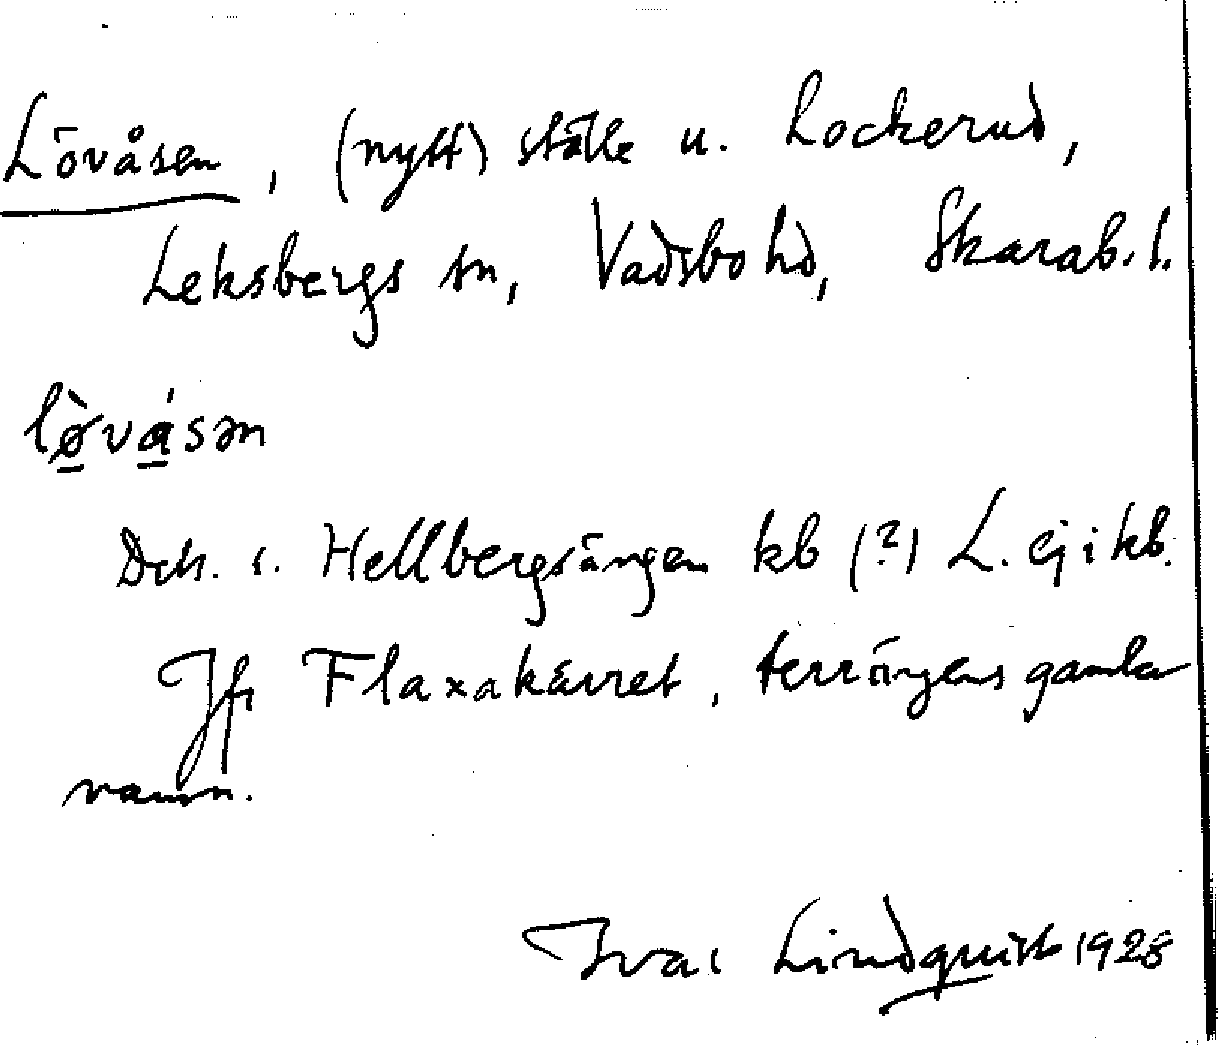 Lövåsen, (nytt) ställe u. Lockerud,
Leksbergs sn, Vadsbo hd, Skarab. l.
lø̀vásən
Dets. s. Hellbergsängen kb (?) L. ej i kb.
Jfr Flaxakärret, terrängens gamla
namn.
Ivar Lindquist 1928